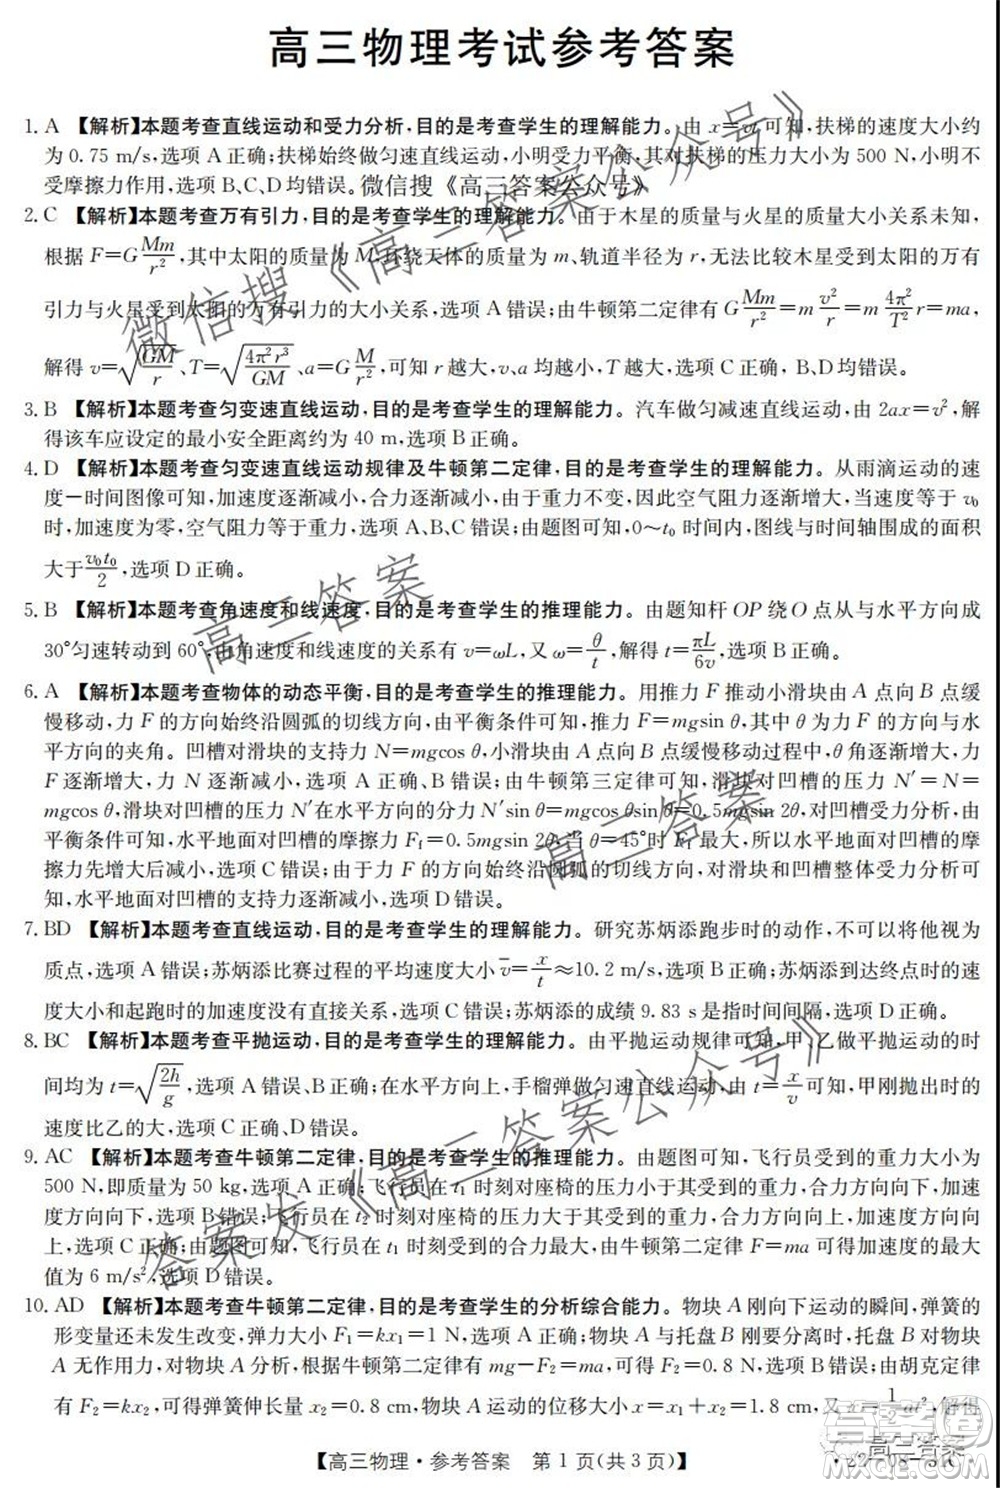 高三物理考试参考答案
1. A 【解析】本题考查直线运动和受力分析,目的是考查学生的理解能力。由 x=vt 可知,扶梯的速度大小约
为 0.75 m/s,选项 A 正确;扶梯始终做匀速直线运动,小明受力平衡,其对扶梯的压力大小为 500 N,小明不
受摩擦力作用,选项 B、C、D 均错误。微信搜《高三答案公众号》
2. C 【解析】本题考查万有引力,目的是考查学生的理解能力。由于木星的质量与火星的质量大小关系未知,
根据 F=G\frac{Mm}{r^2},其中太阳的质量为 M、环绕天体的质量为 m、轨道半径为 r,无法比较木星受到太阳的万有
引力与火星受到太阳的万有引力的大小关系,选项 A 错误;由牛顿第二定律有 G\frac{Mm}{r^2}=m\frac{v^2}{r}=m\frac{4π^2}{T^2}r=ma,
解得 v=\sqrt{\frac{GM}{r}}、T=\sqrt{\frac{4π^2r^3}{GM}}、a=G\frac{M}{r^2},可知 r 越大,v、a 均越小,T 越大,选项 C 正确, B、D 错误。
3. B 【解析】本题考查匀变速直线运动,目的是考查学生的理解能力。汽车做匀减速直线运动,由 2ax=v²,解
得该车应设定的最小安全距离约为 40 m,选项 B 正确。
4. D 【解析】本题考查匀变速直线运动规律及牛顿第二定律,目的是考查学生的理解能力。从雨滴运动的速
度—时间图像可知,加速度逐渐减小,合力逐渐减小,由于重力不变,因此空气阻力逐渐增大,当速度等于 v₀
时,加速度为零,空气阻力等于重力,选项 A、B、C 错误;由题图可知,0～t₀ 时间内,图线与时间轴围成的面积
大于\frac{v₀t₀}{2},选项 D 正确。
5. B 【解析】本题考查角速度和线速度,目的是考查学生的推理能力。由题知杆 OP 绕 O 点从与水平方向成
30°匀速转动到 60°,由角速度和线速度的关系有 v=ωL,又 ω=\frac{θ}{t},解得 t=\frac{πL}{6v}。
6. A 【解析】本题考查物体的动态平衡,目的是考查学生的推理能力。用推力 F 推动小滑块由 A 点向 B 点缓
慢移动,力 F 的方向始终沿圆弧的切线方向,由平衡条件可知,推力 F=mgsin θ,其中 θ 为力 F 的方向与水
平方向的夹角。凹槽对滑块的支持力 N=mgcos θ,小滑块由 A 点向 B 点缓慢移动过程中,θ 角逐渐增大,力
F 逐渐增大,力 N 逐渐减小,选项 A 正确、B 错误;由牛顿第三定律可知,滑块对凹槽的压力 N′=N=
mgcos θ,滑块对凹槽的压力 N′在水平方向的分力 N′sin θ=mgcos θsin θ=0.5mgsin 2θ,对凹槽受力分析,由
平衡条件可知,水平地面对凹槽的摩擦力 F_f=0.5mgsin 2θ,当 θ=45°时 F_f 最大,所以水平地面对凹槽的摩
擦力先增大后减小,选项 C 错误;由于力 F 的方向始终沿圆弧的切线方向,对滑块和凹槽整体受力分析可
知,水平地面对凹槽的支持力逐渐减小,选项 D 错误。
7. BD 【解析】本题考查直线运动,目的是考查学生的理解能力。研究苏炳添跑步时的动作,不可以将他视为
质点,选项 A 错误;苏炳添比赛过程的平均速度大小 v̄=\frac{x}{t}≈10.2 m/s,选项 B 正确;苏炳添到达终点时的速
度大小和起跑时的加速度大小没有直接关系,选项 C 错误;苏炳添的成绩 9.83 s 是指时间间隔,选项 D 正确。
8. BC 【解析】本题考查平抛运动,目的是考查学生的理解能力。由平抛运动规律可知,甲、乙做平抛运动的时
间均为 t=\sqrt{\frac{2h}{g}},选项 A 错误、B 正确;在水平方向上,手榴弹做匀速直线运动,由 t=\frac{x}{v}可知,甲刚抛出时的
速度比乙的大,选项 C 正确、D 错误。
9. AC 【解析】本题考查牛顿第二定律,目的是考查学生的推理能力。由题图可知,飞行员受到的重力大小为
500 N,即质量为 50 kg,选项 A 正确;飞行员在 t₁ 时刻对座椅的压力小于其受到的重力,合力方向向下,加速
度方向向下,选项 B 错误;飞行员在 t₂ 时刻对座椅的压力大于其受到的重力,合力方向向上,加速度方向向
上,选项 C 正确;由题图可知,飞行员在 t₁ 时刻受到的合力最大,由牛顿第二定律 F=ma 可得加速度的最大
值为 6 m/s²,选项 D 错误。
10. AD 【解析】本题考查牛顿第二定律,目的是考查学生的分析综合能力。物块 A 刚向下运动的瞬间,弹簧的
形变量还未发生改变,弹力大小 F₁=kx₁=1 N,选项 A 正确;物块 A 与托盘 B 刚要分离时,托盘 B 对物块
A 无作用力,对物块 A 分析,根据牛顿第二定律有 mg-F₂=ma,可得 F₂=0.8 N,选项 B 错误;由胡克定律
有 F₂=kx₂,可得弹簧伸长量 x₂=0.8 cm,物块 A 运动的位移大小 x=x₁+x₂=1.8 cm,又 x=\frac{1}{2}at²,解得
【高三物理·参考答案 第 1 页(共 3 页)】
高三答案
微信搜《高三答案公众号》
高三答案
高三答案
答案发《高三答案公众号》
答案圈
MXQE.COM